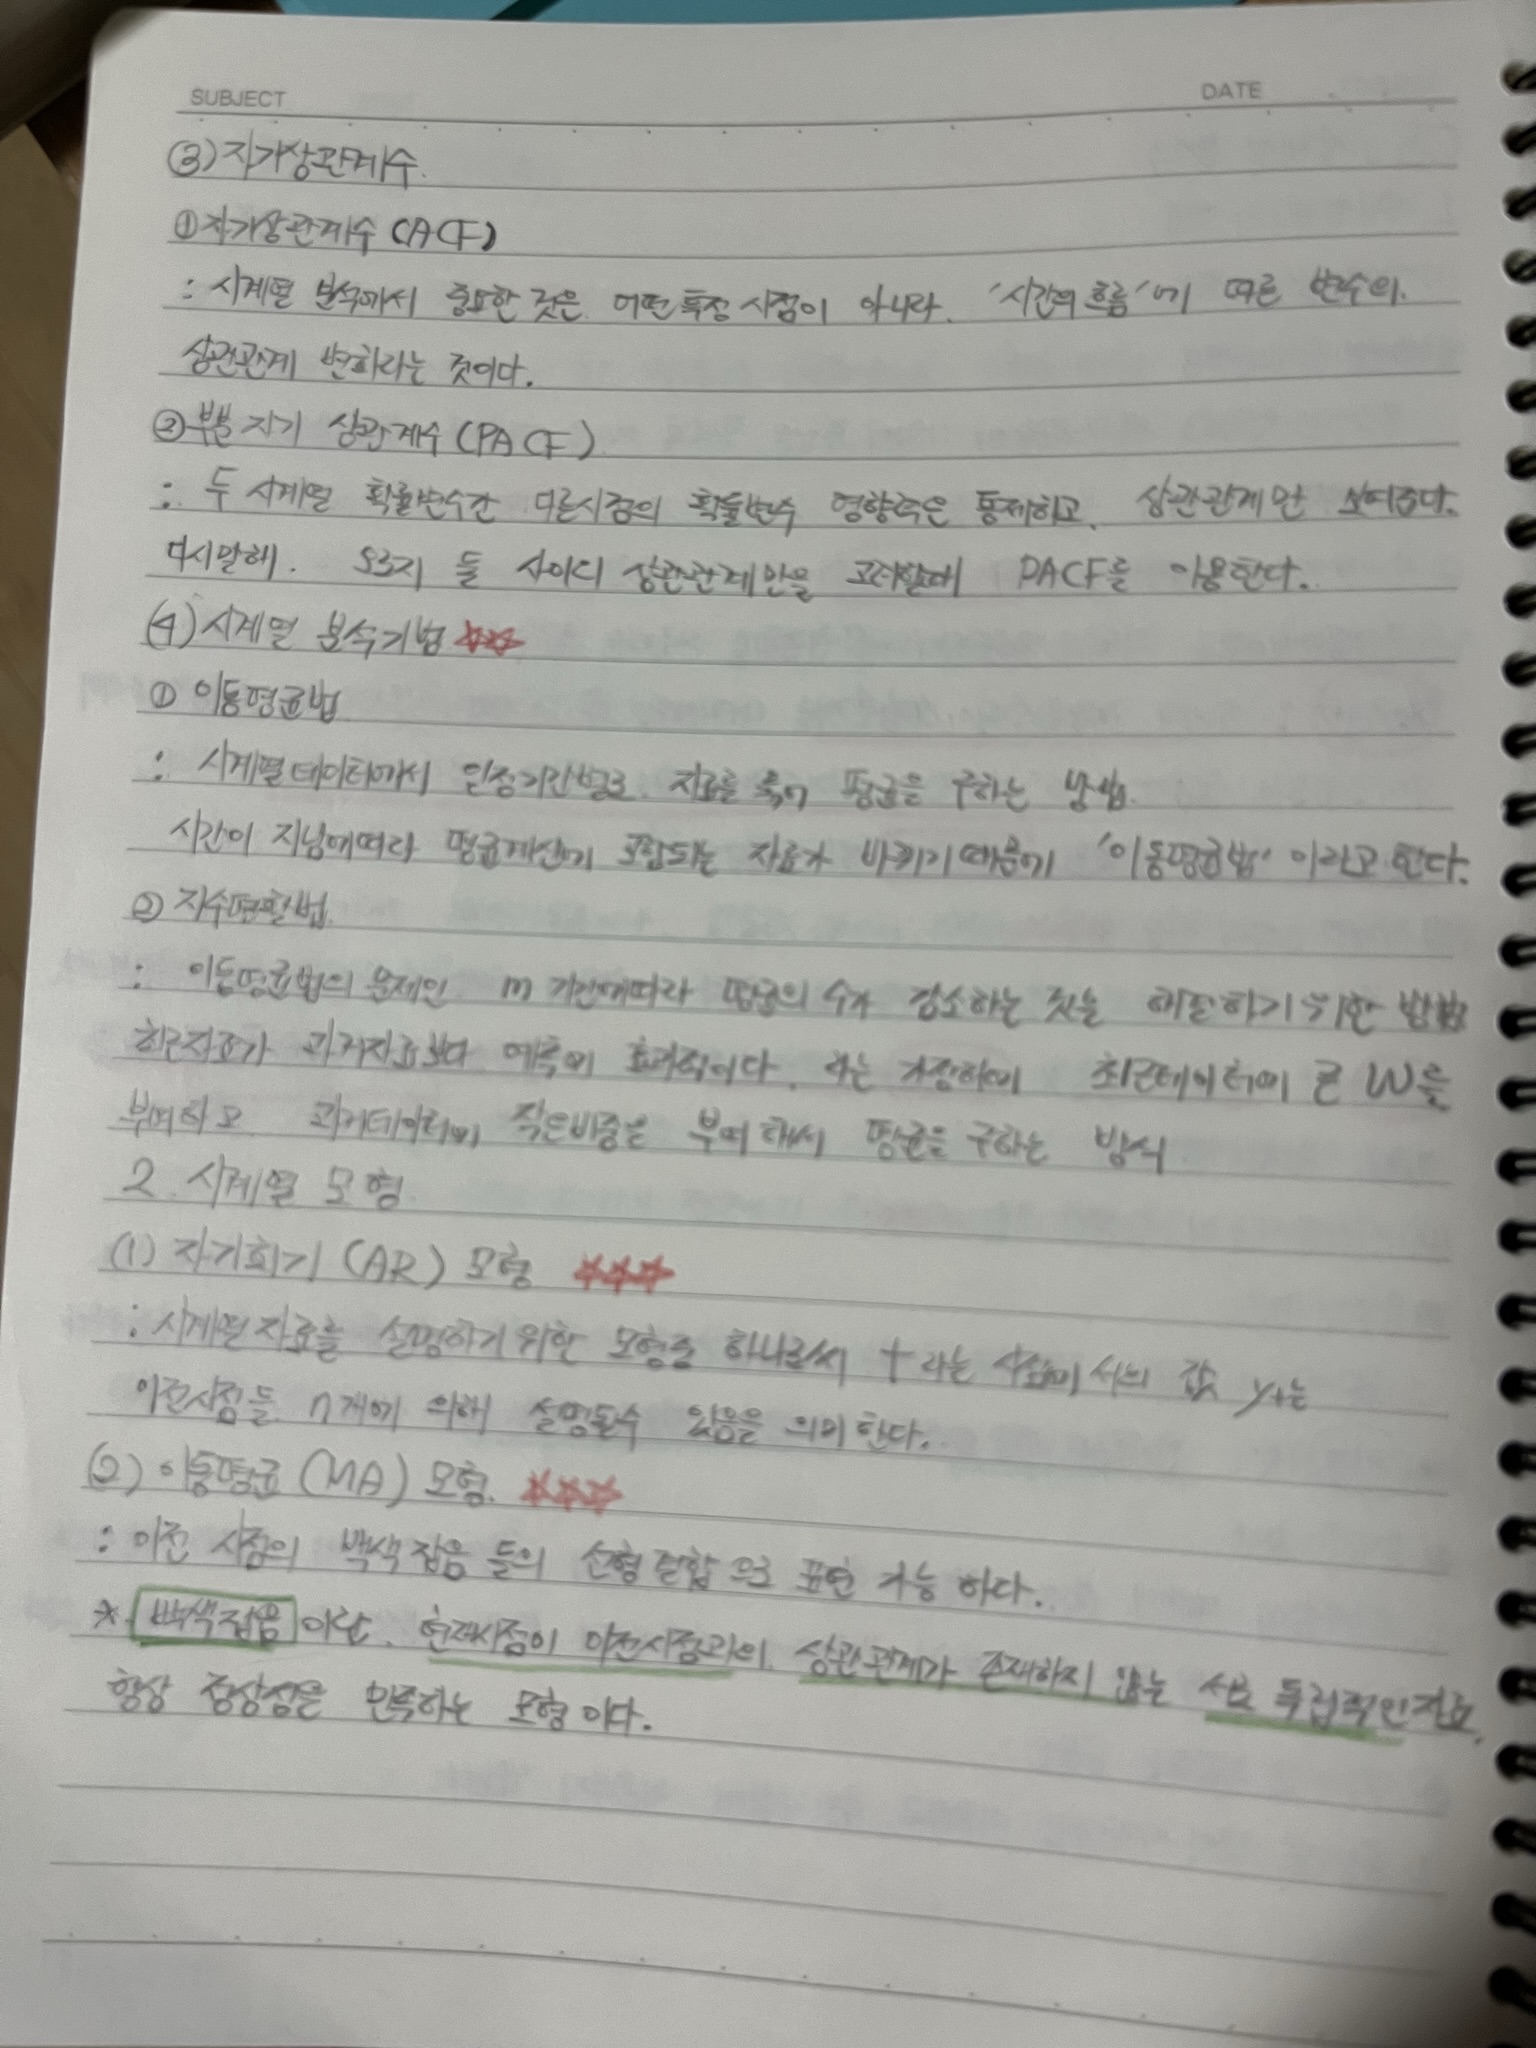 SUBJECT DATE
(3) 자기상관계수.
① 자기상관계수 (ACF)
: 시계열 분석에서 중요한 것은 어떤 특정 시점이 아니라. '시간의 흐름'에 따른 변수의.
상관관계 변화라는 것이다.
② 부분 자기 상관계수 (PACF)
: 두 시계열 확률변수간 다른시점의 확률변수 영향력은 통제하고, 상관관계만 보여준다.
다시말해. 오로지 둘 사이의 상관관계만을 고려할때 PACF를 이용한다.
(4) 시계열 분석기법 ☆☆
① 이동평균법
: 시계열데이터에서 일정기간별로 자료를 묶어 평균을 구하는 방법.
시간이 지남에따라 평균계산에 포함되는 자료가 바뀌기때문에 '이동평균법' 이라고 한다.
② 지수평활법.
: 이동평균법의 문제인 m 기간에따라 평균의 수가 감소하는 것을 해결하기 위한 방법
최근자료가 과거자료보다 예측에 효과적이다. 라는 가정하에 최근데이터에 큰 W를
부여하고 과거데이터에 작은비중을 부여해서 평균을 구하는 방식
2. 시계열 모형.
(1) 자기회귀 (AR) 모형 ☆☆☆
: 시계열자료를 설명하기위한 모형중 하나로써 t라는 시점에서의 값 yt는
이전시점들 n개에 의해 설명될수 있음을 의미한다.
(2) 이동평균 (MA) 모형. ☆☆☆
: 이전 시점의 백색잡음 들의 선형결합으로 표현 가능 하다.
* 백색잡음 이란. 현재시점이 이전시점과의. 상관관계가 존재하지 않는 서로 독립적인자료.
항상 정상성을 만족하는 모형이다.